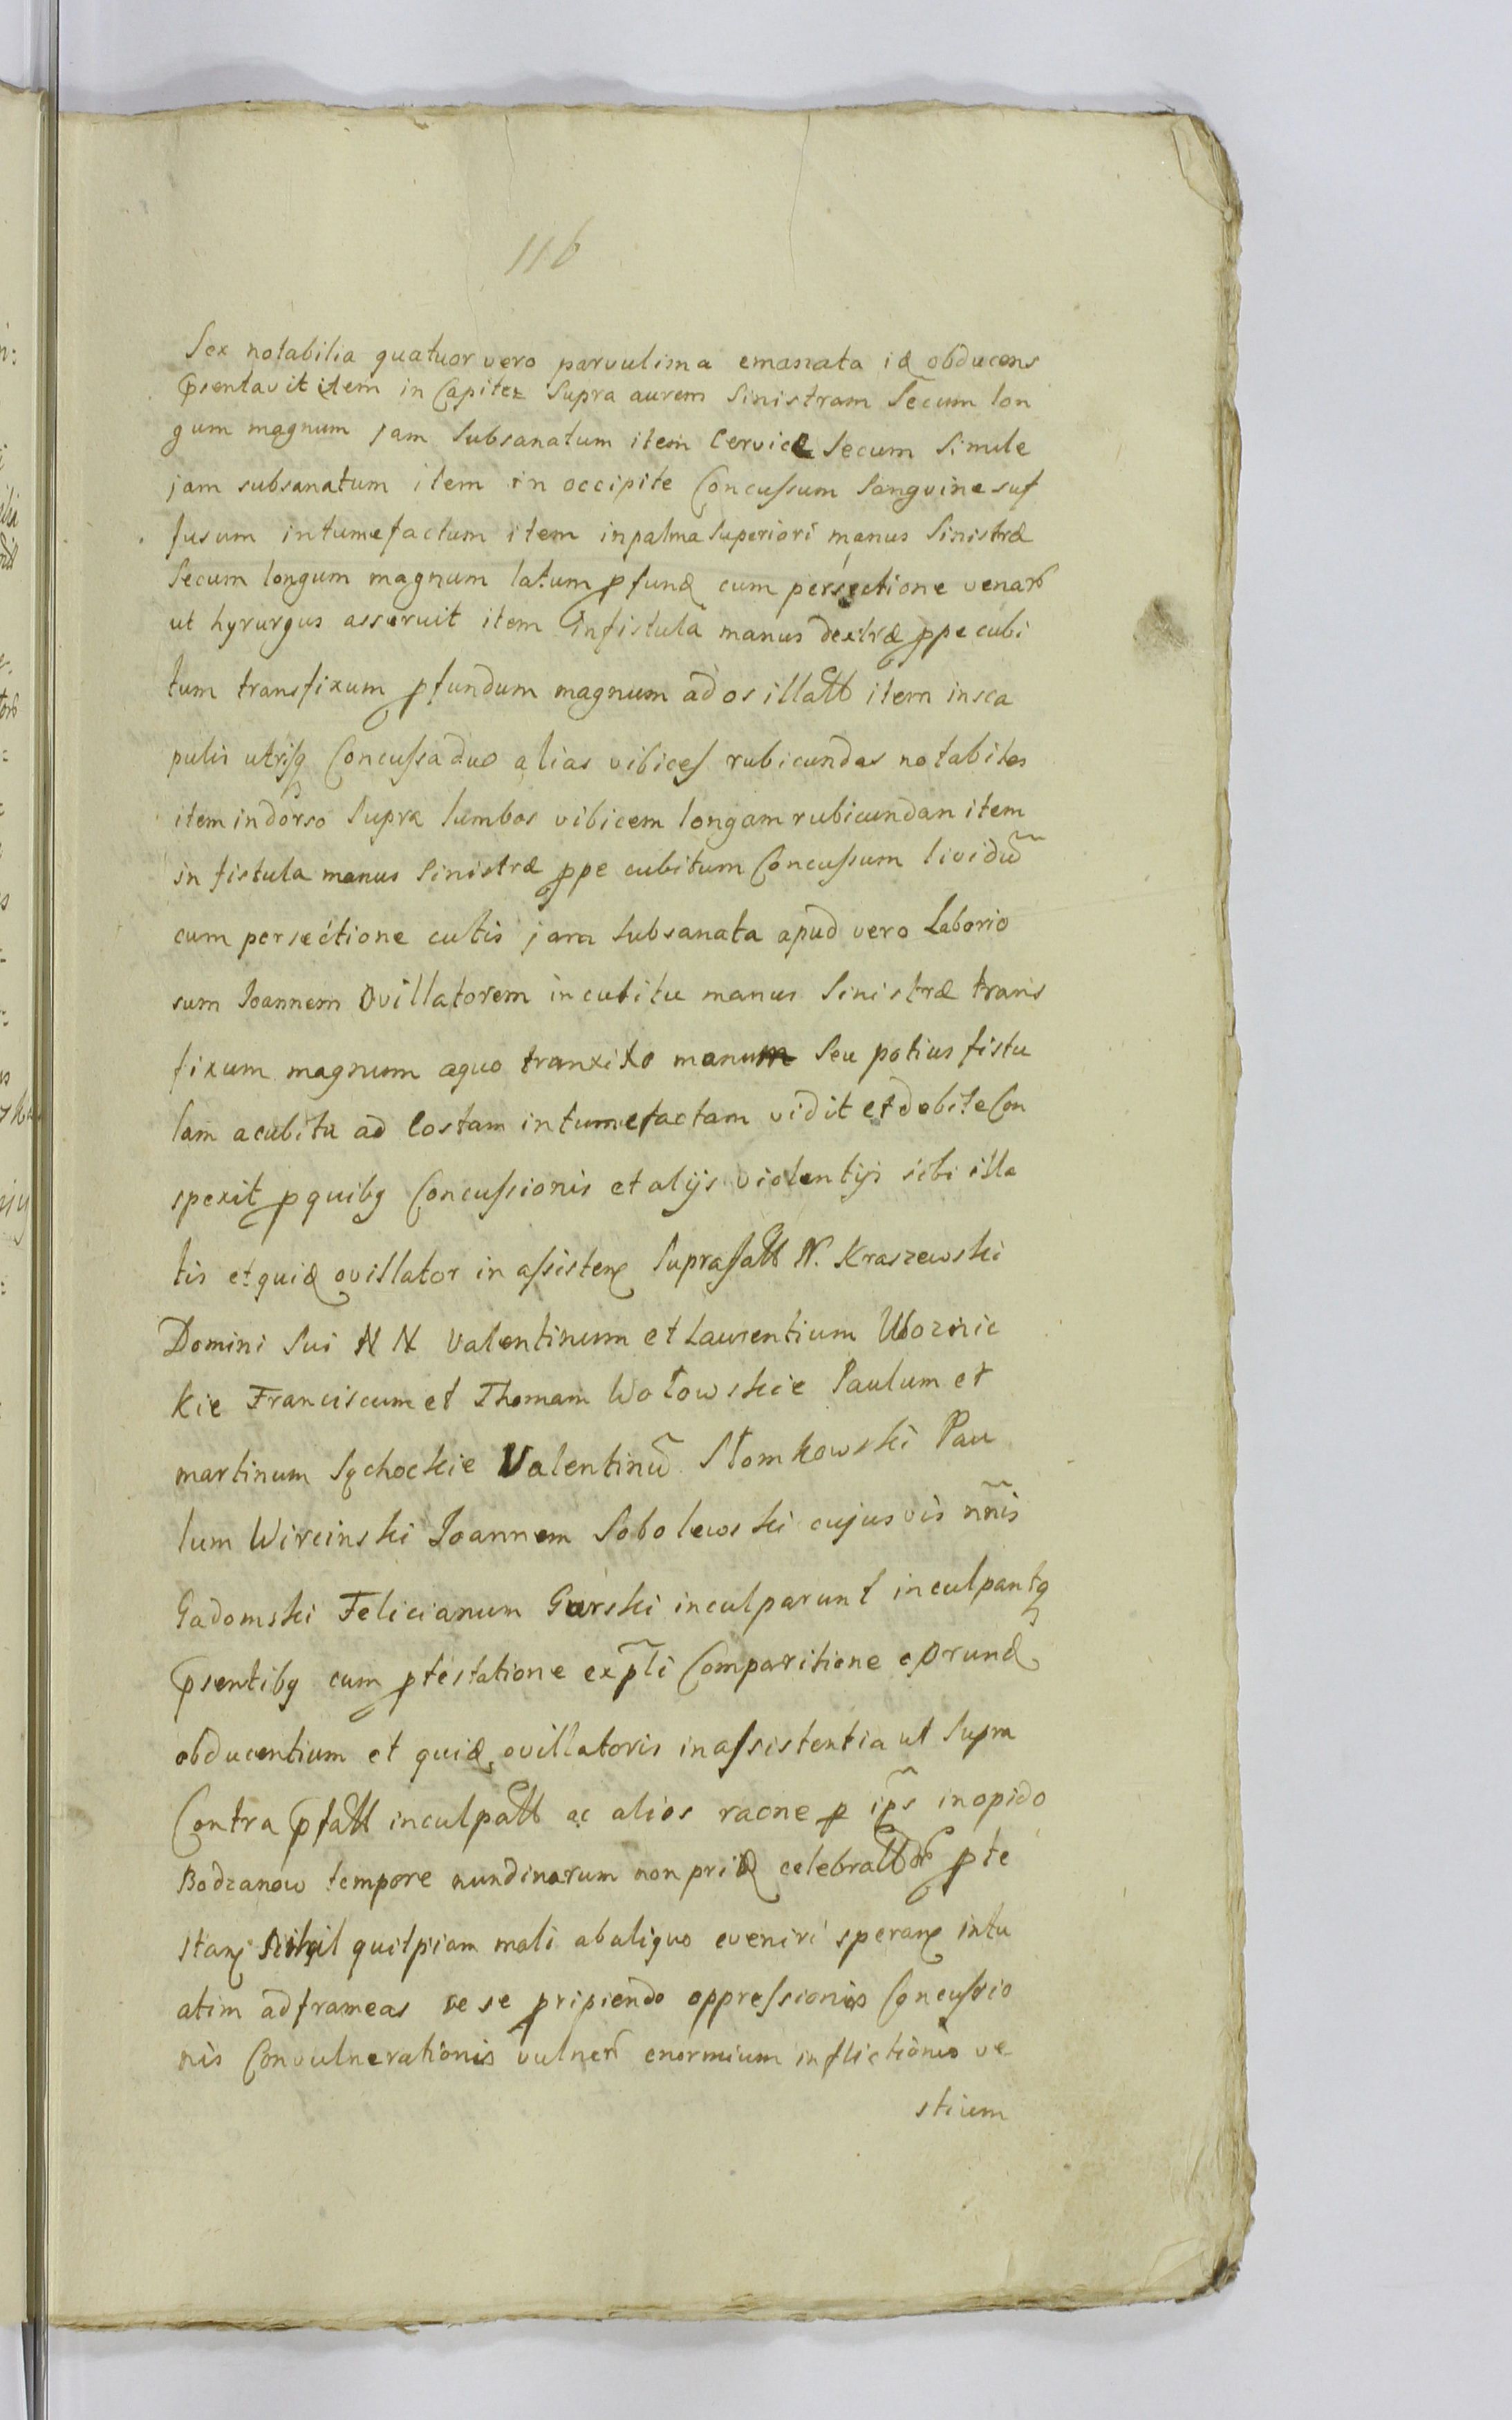 116
Sex notabilia quatuor vero parvulima emanata id obducens
psentavit item in Capite Supra aurem Sinistram Secum lon
gum magnum jam Subsanatum item Cervice Secum Simile
jam subsanatum item in occipite Concussum Sanguine suf
fusum intumefactum item in palma Superiori manus Sinistræ
Secum longum magnum latum pfund cum persectione venar
ut hyrurgus asseruit item in fistula manus dextræ ppe cubi
tum transfixum pfundum magnum ad os illatt item in sca
pulis utrisq Concussa duo alias vibices rubicundas notabiles
item in dorso Supra lumbos vibicem longam rubicundan item
in fistula manus Sinistræ ppe cubitum Concussum lividu
cum persectione cutis jam Subsanata apud vero Laborio
sum Joannem Ovillatorem in cubitu manus Sinistræ trans
fixum magnum a quo tranxito manum Seu potius fistu
lam a cubitu ad Costam intumefactam vidit et debite Con
spexit p quibq Concussionis et alijs violentijs sibi illa
tis et quid ovillator in assisten Suprafatt N. Kraszewski
Domini Sui N N Valentinum et Laurentium Uboznic
kie Franciscum et Thomam Wołowskie Paulum et
martinum Sychockie Valentinu Słomkowski Pau
lum Wircinski Joannem Sobolewski cujusvis nnis
Gadomski Felicianum Gurski inculparunt inculpantq
psentibq cum ptestatione ex pti Comparitione eorund
obducentium et quid ovillatoris in assistentia ut Supra
Contra pfatt inculpatt ac alios raone p ips in opido
Bodzanow tempore nundinarum non prid celebratt pte
stan Nihil quitpiam mali ab aliquo eveniri speran intu
atim ad frameas se se pripiendo oppressionis Concussio
nis Convulnerationis vulner enormium inflictionis ve
stium